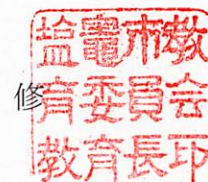 修
塩竈市教
育委員会
教育長印